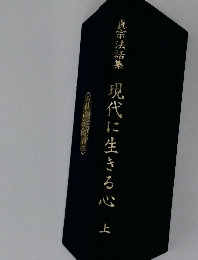 真宗法話集
現代に生きる心
上